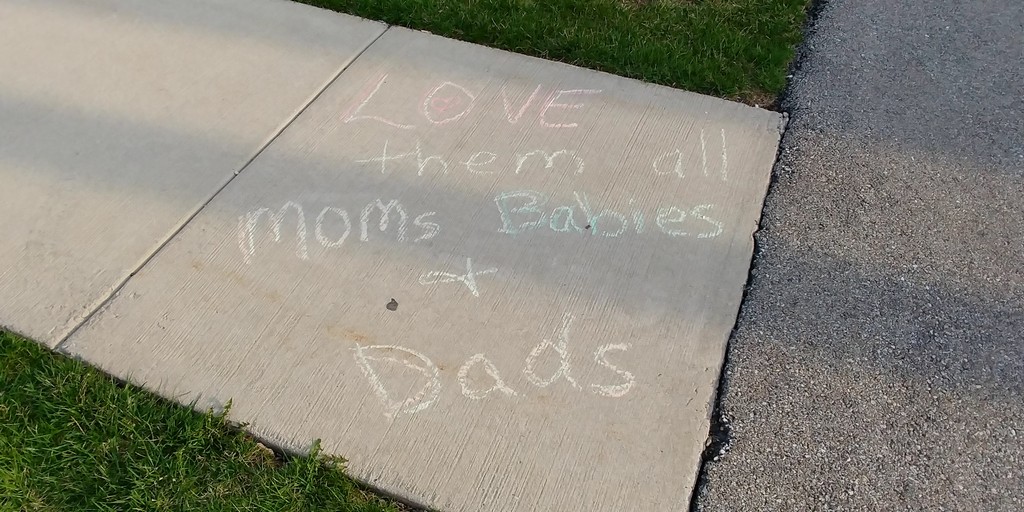 LOVE
them all
moms Babies
+
Dads